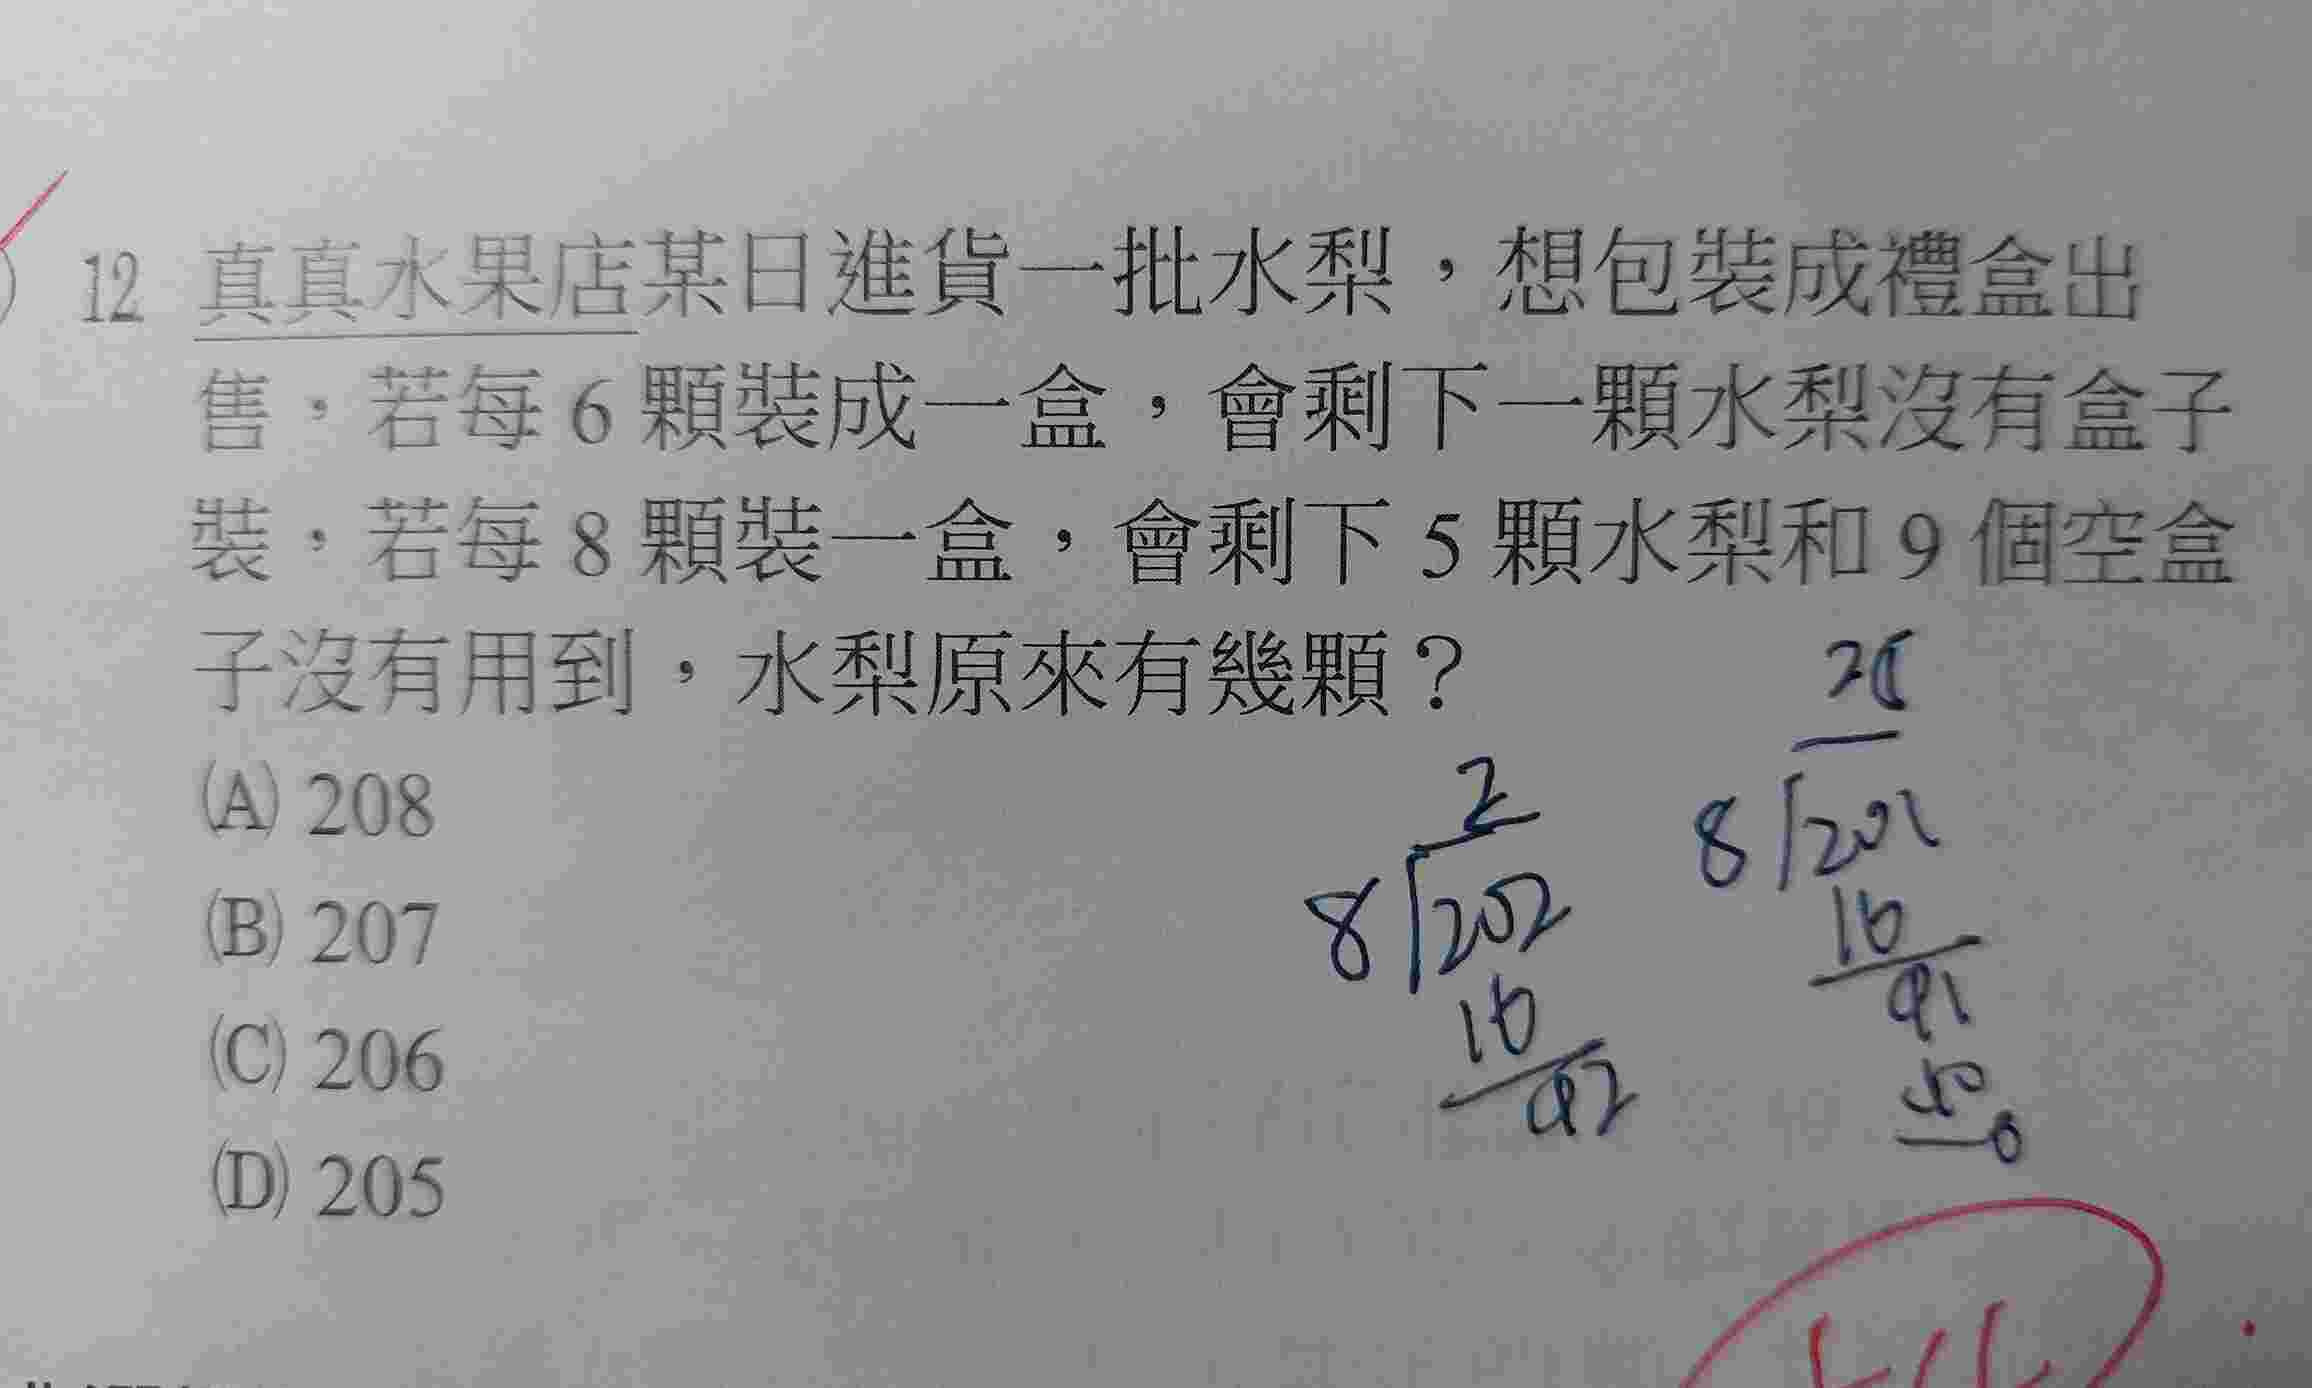 12 真真水果店某日進貨一批水梨，想包裝成禮盒出
售，若每 6 顆裝成一盒，會剩下一顆水梨沒有盒子
裝，若每 8 顆裝一盒，會剩下 5 顆水梨和 9 個空盒
子沒有用到，水梨原來有幾顆？
(A) 208
(B) 207
(C) 206
(D) 205
2
8 202
16
42
8 201
16
41
40